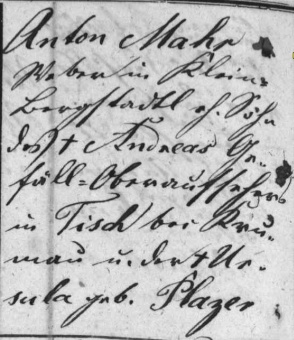 Anton Mahr
Weber in Klein-
Bergstadtl eh. Sohn
des † Andreas Ge-
fäll-Oberaufsehers
in Tisch bei Kru-
mau u. der † Ur-
sula geb. Plazer